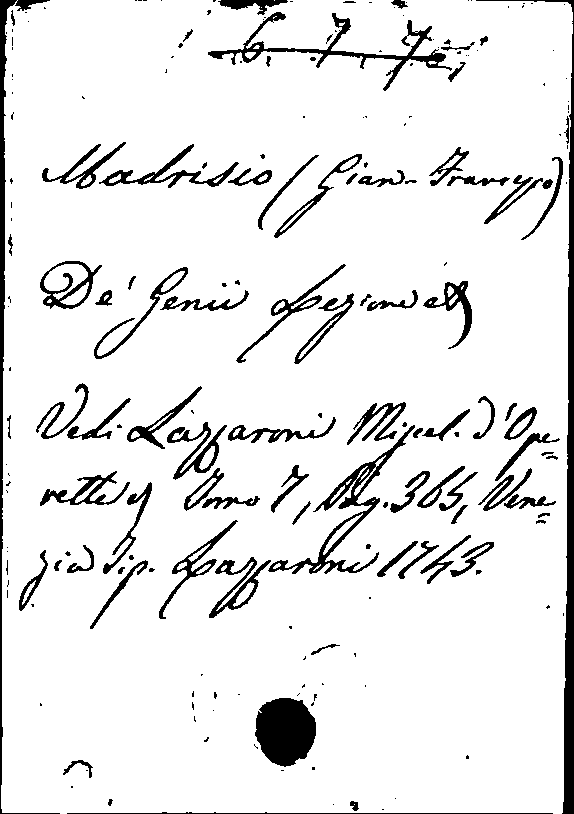 6. 7. 7
Madrisio (Gian-Francesco)
De' Genii Lezione &
Vedi Lazzaroni Miscel. d'Ope=
rette & Tomo 7, Pag. 365, Vene=
zia Tip. Lazzaroni 1743.